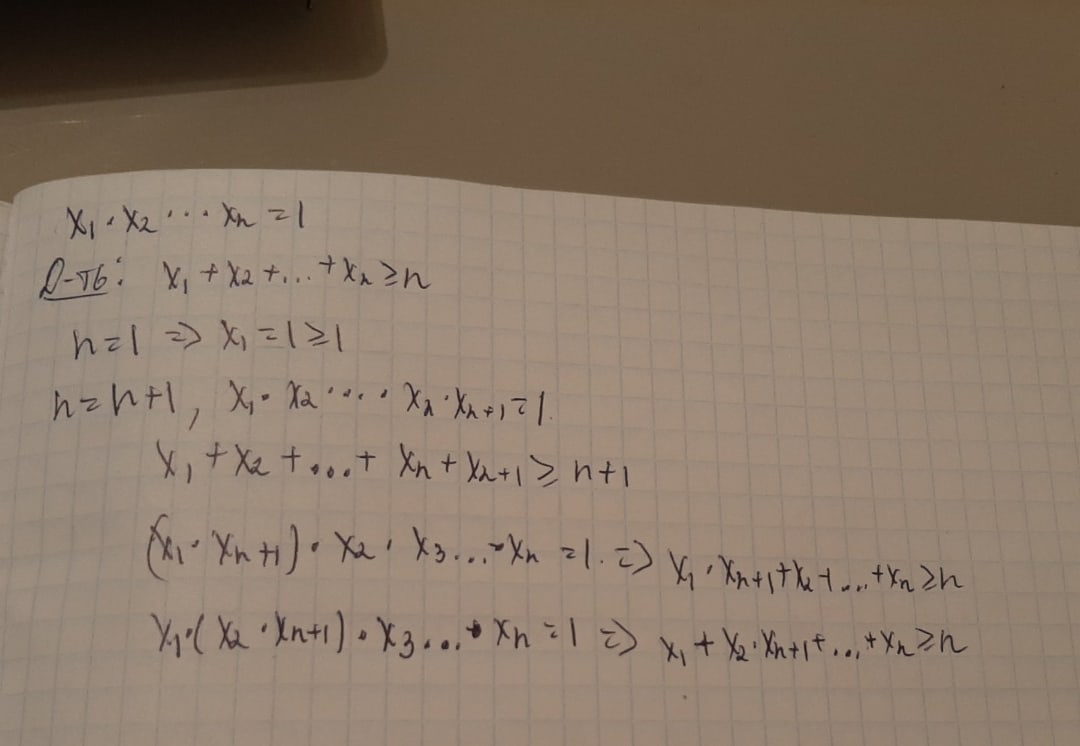 x₁·x₂···xₙ=1
Д-ть: x₁+x₂+...+xₙ≥n
n=1 ⇒ x₁=1≥1
n=n+1, x₁·x₂····xₙ·xₙ₊₁=1.
x₁+x₂+...+xₙ+xₙ₊₁≥n+1
(x₁·xₙ₊₁)·x₂·x₃...·xₙ=1. ⇒ x₁·xₙ₊₁+x₂+...+xₙ≥n
x₁·(x₂·xₙ₊₁)·x₃...·xₙ=1 ⇒ x₁+x₂·xₙ₊₁+...+xₙ≥n